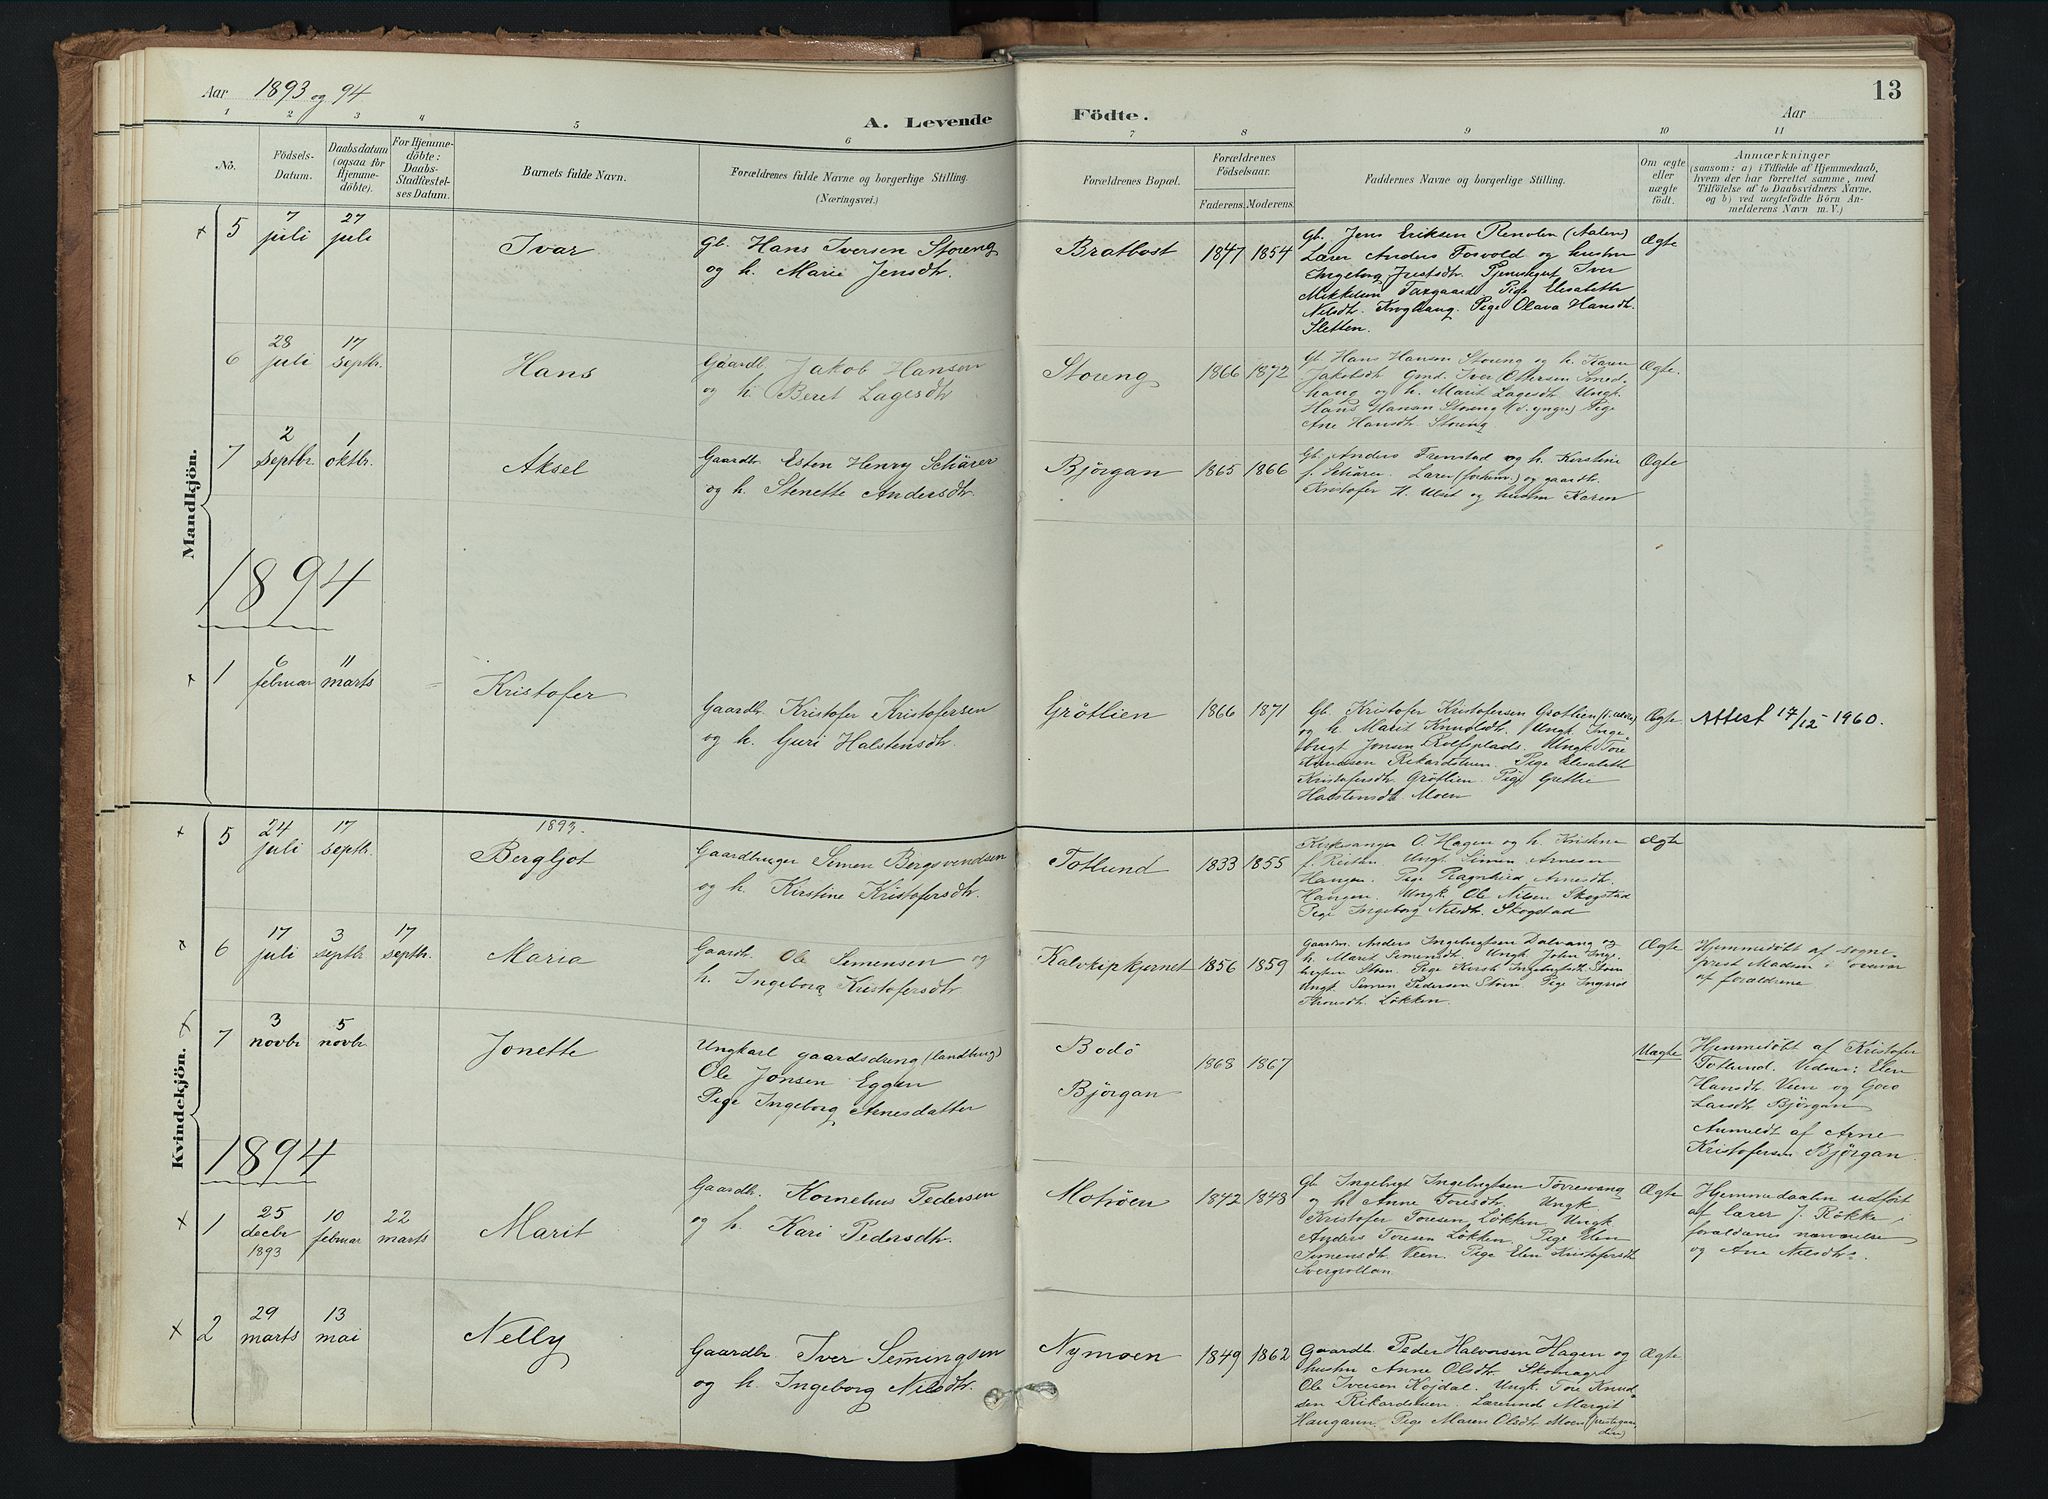 Aar 1893 og 94
A. Levende Födte.
Aar
13
1 2 3 4 5 6 7 8 9 10 11
No.
Födsels-
Datum.
Daabsdatum
(ogsaa for
Hjemme-
döbte).
For Hjemme-
döbte:
Daabs-
Stadfæstel-
ses Datum.
Barnets fulde Navn.
Forældrenes fulde Navne og borgerlige Stilling.
(Næringsvei.)
Forældrenes Bopæl.
Forældrenes
Födselsaar.
Faderens. Moderens.
Faddernes Navne og borgerlige Stilling.
Om ægte
eller
uægte
födt.
Anmærkninger
(saasom: a) i Tilfælde af Hjemmedaab,
hvem der har forrettet samme, med
Tilföielse af to Daabsvidners Navne,
og b) ved uægtefödte Börn An-
melderens Navn m. V.)
Mandkjön.
5
7
juli
27
juli
Ivar
Gb. Hans Iversen Storeng
og h. Marie Jensdtr.
Bratbost
1847 1854
Gb. Jens Eriksen Renolen (Aalen)
Lærer Anders Fosvold og hustru
Ingeborg Tjenestegut Iver
Mikkelsen Pige Elisabeth
Nilsdtr. Pige Olava Hansdtr.
Sletten.
Ægte
6
28
juli
17
septbr.
Hans
Gaardb. Jakob Hansen
og h. Beret Lagesdtr
Storeng
1866 1872
Gb. Hans Hansen Storeng og h. Karen
Jakobsdtr. Gmd. Iver Ottersen Smed-
haug og h. Marit Lagesdtr. Ungk.
Hans Hansen Storeng (d. yngre) Pige
Ane Hansdtr. Storeng
Ægte.
7
2
septbr.
1
oktbr.
Aksel
Gaardb. Esten Henry Schärer
og h. Stenette Andersdtr.
Björgan
1865 1866
Gb. Anders Trønstad og h. Kirstine
f. Schärer. Lærer og gaardb.
Kristofer H. Ulset og hustru Karen
Ægte
1894
1
6
februar
11
marts
Kristofer
Gaardb. Kristofer Kristofersen
og h. Guri Halstensdtr.
Grøtlien
1866 1871
Gb. Kristofer Kristofersen Grøtlien
og h. Marit Knudsdtr. Ungk. Inge-
brigt Jonsen Rolfsplads. Ungk. Tore
Knudsen Rikardstuen. Pige Elisabeth
Kristofersdtr. Grøtlien. Pige Grethe
Halstensdtr. Moen
Ægte.
Attest 17/12-1960.
Kvindekjön.
5
24
juli
17
septbr.
1893.
Bergljot
Gaardbruger Simen Bergsvendsen
og h. Kirstine Kristofersdtr.
Totlund
1833 1855
Kirkesanger O. Hagen og h. Kristine
f. Reitan. Ungk. Simen Arnesen
Haugen. Pige Ragnhild Arnesdtr.
Haugen. Ungk. Ole Nilsen Skogstad
Pige Ingeborg Nilsdtr. Skogstad
Ægte
6
17
juli
3
septbr.
17
septbr.
Maria
Gaardb. Ole Simensen og
h. Ingeborg Kristofersdtr.
Kalvkipkjernet
1856 1859
Gaardm. Anders Ingebrigtsen Dalvang og
h. Marit Simensdtr. Ungk. John Inge-
brigtsen Støen. Pige Kirsti Ingebrigtsdtr. Støen
Ungk. Simen Pedersen Støen. Pige Ingrid
Løkken.
Ægte
Hjemmedöbt af sogne-
prest Madsen i
af forældrene
7
3
novbr
5
novbr.
Jonette
Ungkarl gaardsdreng (landbrug)
Ole Jonsen Eggen
Pige Ingeborg Arnesdatter
Bodö
Björgan
1868 1867
Uægte
Hjemmedöbt af Kristofer
Totlund. Vidner: Elen
Hansdtr. Veen og Goro
Larsdtr Björgan
Anmeldt af Arne
Kristofersen Björgan.
1894
1
25
decbr
1893
10
februar
22
marts
Marit
Gaardb. Kornelius Pedersen
og h. Kari Pedersdtr.
Motrøen
1842 1848
Gb. Ingebrigt Ingebrigtsen Tørresvang
og h. Anne Toresdtr. Ungk.
Kristofer Toresen Løkken. Ungk.
Anders Toresen Løkken. Pige Elen
Simensdtr. Veen. Pige Elen Kristofersdtr.
Svergvollan.
Ægte
Hjemmedaaben udført
af lærer J. Røkke i
forældrenes nærværelse
og Ane Nilsdtr.
2
29
marts
13
mai
Nelly
Gaardbr. Iver Semingsen
og h. Ingeborg Nilsdtr.
Nymoen
1849 1862
Gaardb. Peder Halvorsen Hagen og
hustru Anne Olsdtr. Skomager
Ole Iversen Kojdal. Ungk. Tore Knud-
sen Rikardstuen. Lærerinde Margit
Haugann. Pige Maren Olsdtr. Moen (prestegaar-
den)
Ægte